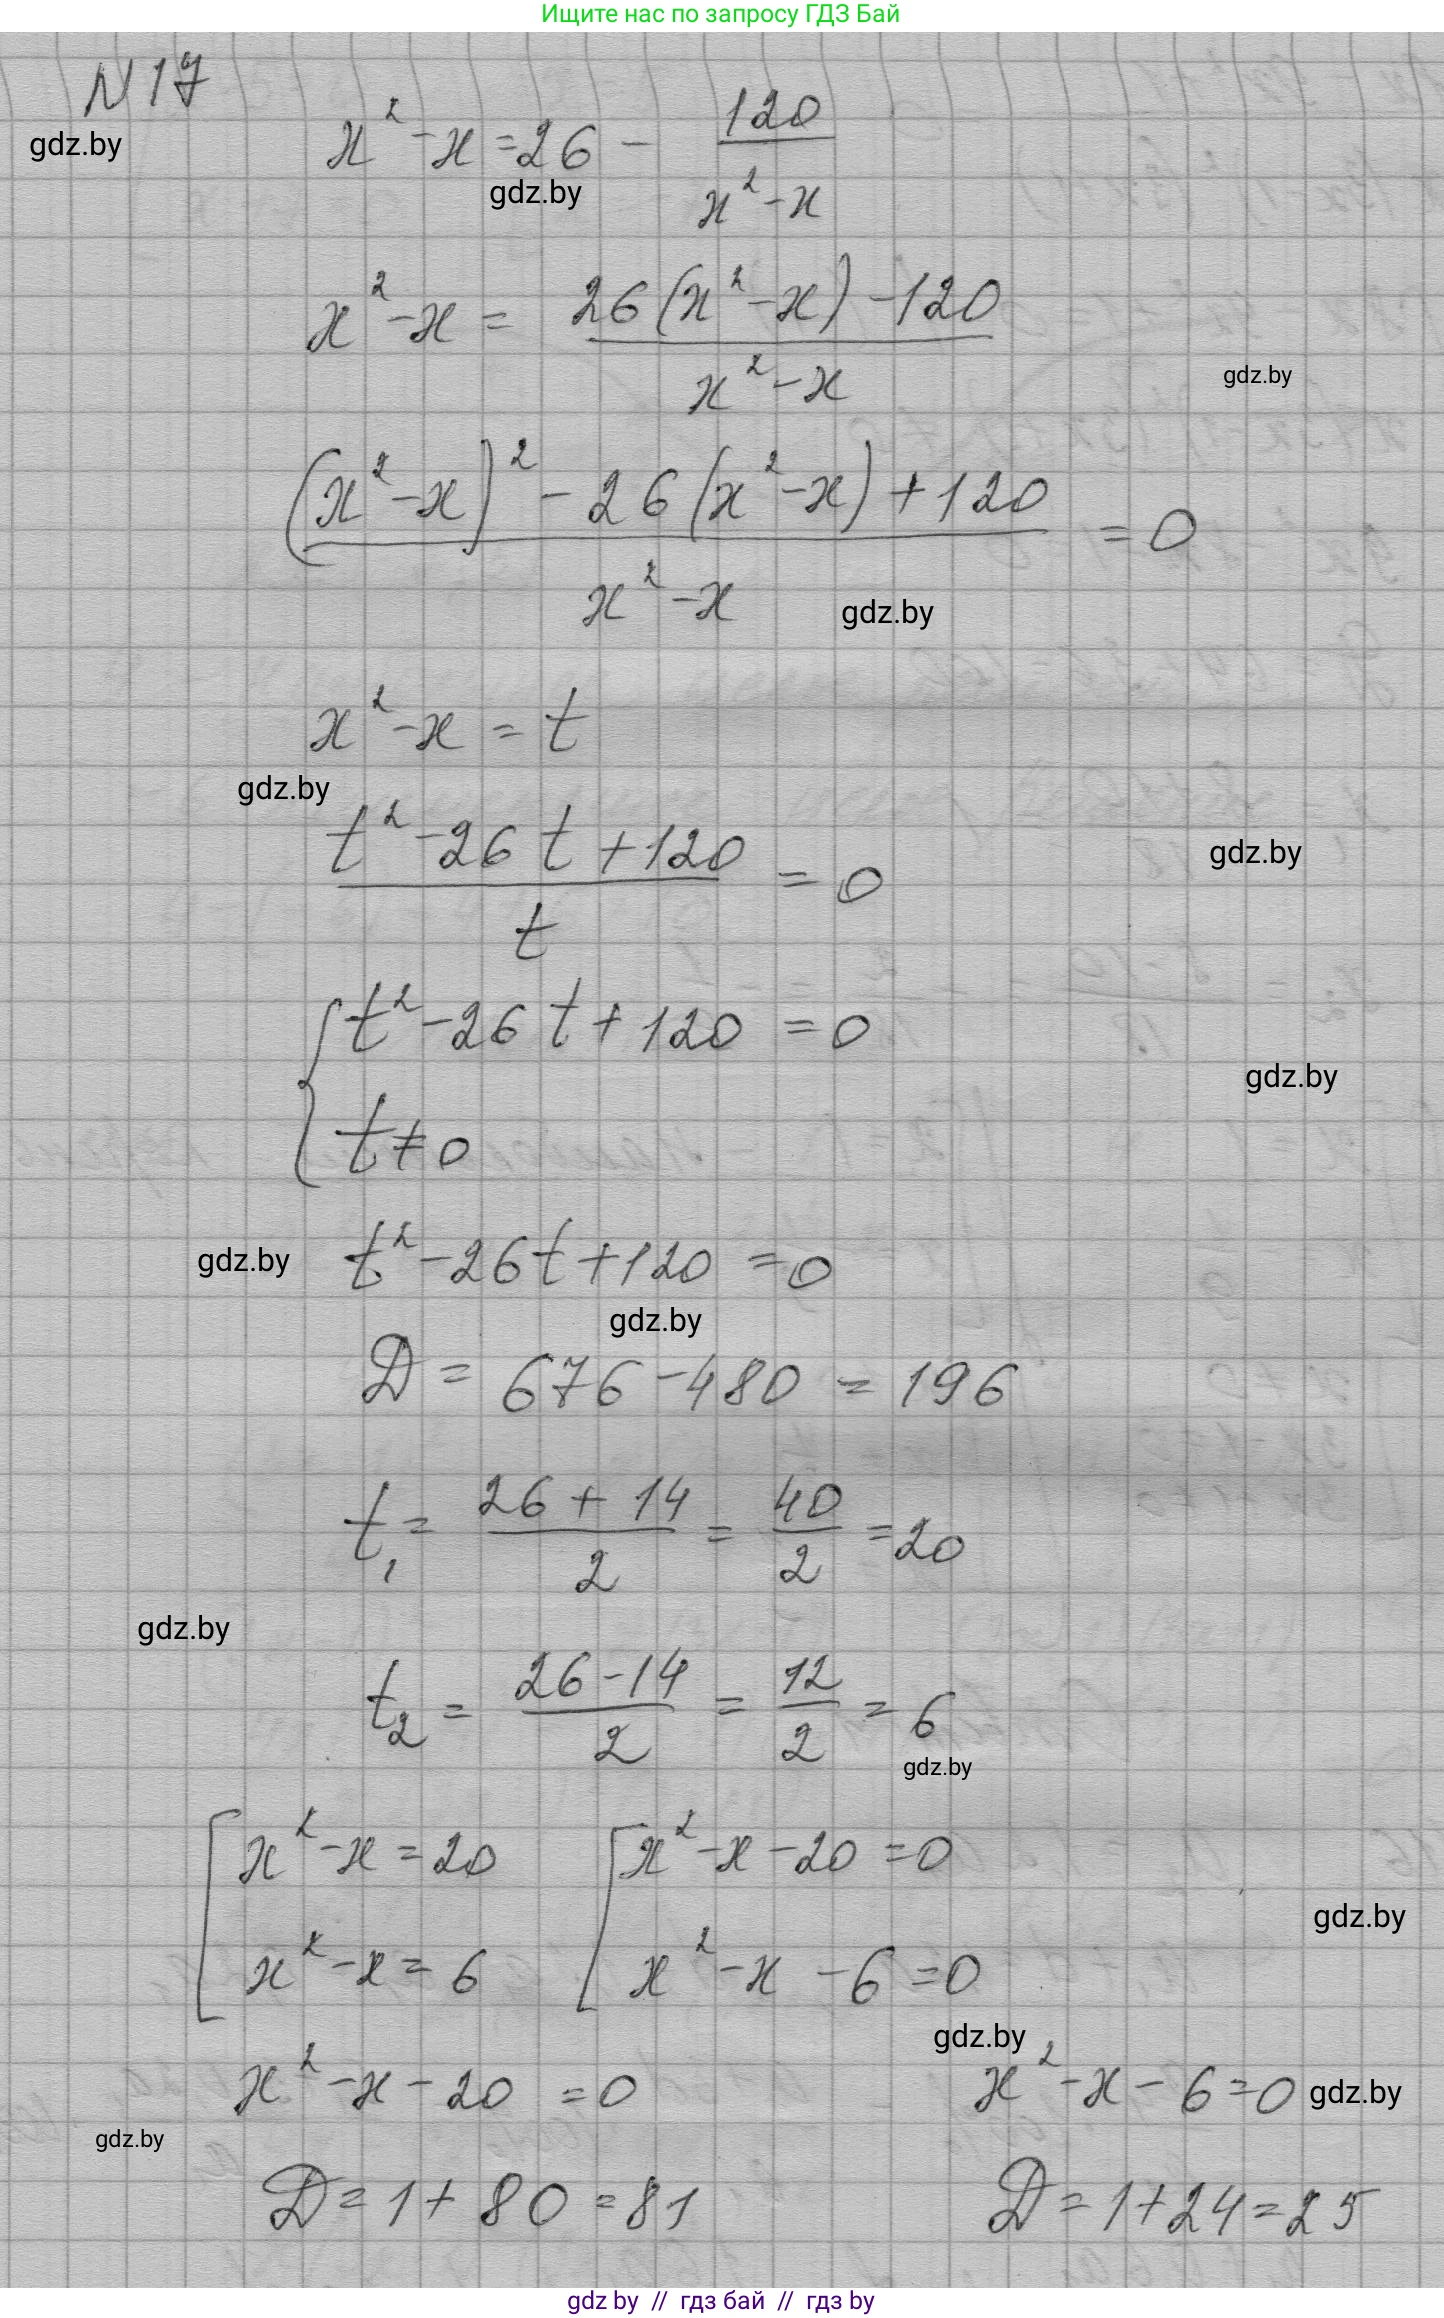 Ищите нас по запросу ГДЗ Бай
N17
gdz.by
x² - x = 26 - 120/(x² - x)
gdz.by
x² - x = (26(x² - x) - 120)/(x² - x)
gdz.by
((x² - x)² - 26(x² - x) + 120)/(x² - x) = 0
gdz.by
x² - x = t
gdz.by
(t² - 26t + 120)/t = 0
gdz.by
{ t² - 26t + 120 = 0
gdz.by
t ≠ 0
gdz.by t² - 26t + 120 = 0
gdz.by
D = 676 - 480 = 196
t₁ = (26 + 14)/2 = 40/2 = 20
gdz.by
t₂ = (26 - 14)/2 = 12/2 = 6
gdz.by
[ x² - x = 20 [ x² - x - 20 = 0
gdz.by
x² - x = 6 x² - x - 6 = 0
gdz.by
x² - x - 20 = 0 x² - x - 6 = 0 gdz.by
gdz.by
D = 1 + 80 = 81 D = 1 + 24 = 25
gdz by // гдз бай // гдз by